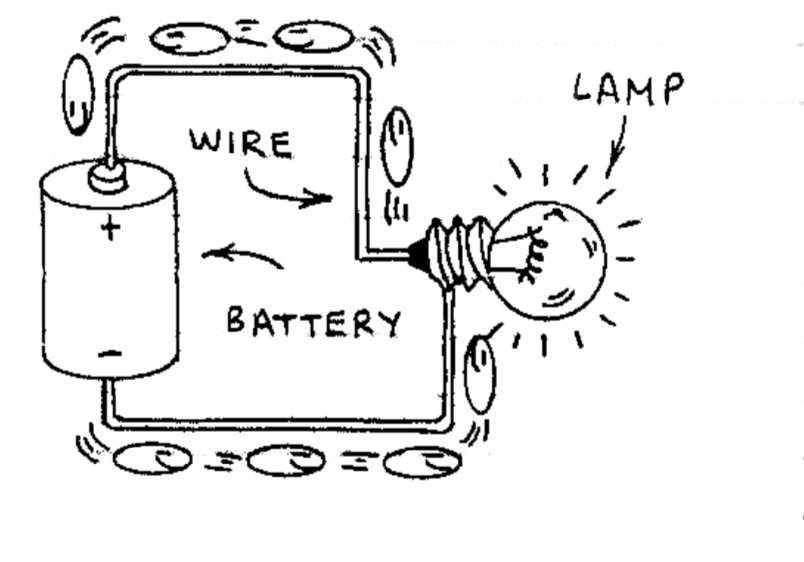 LAMP
WIRE
+
BATTERY
−